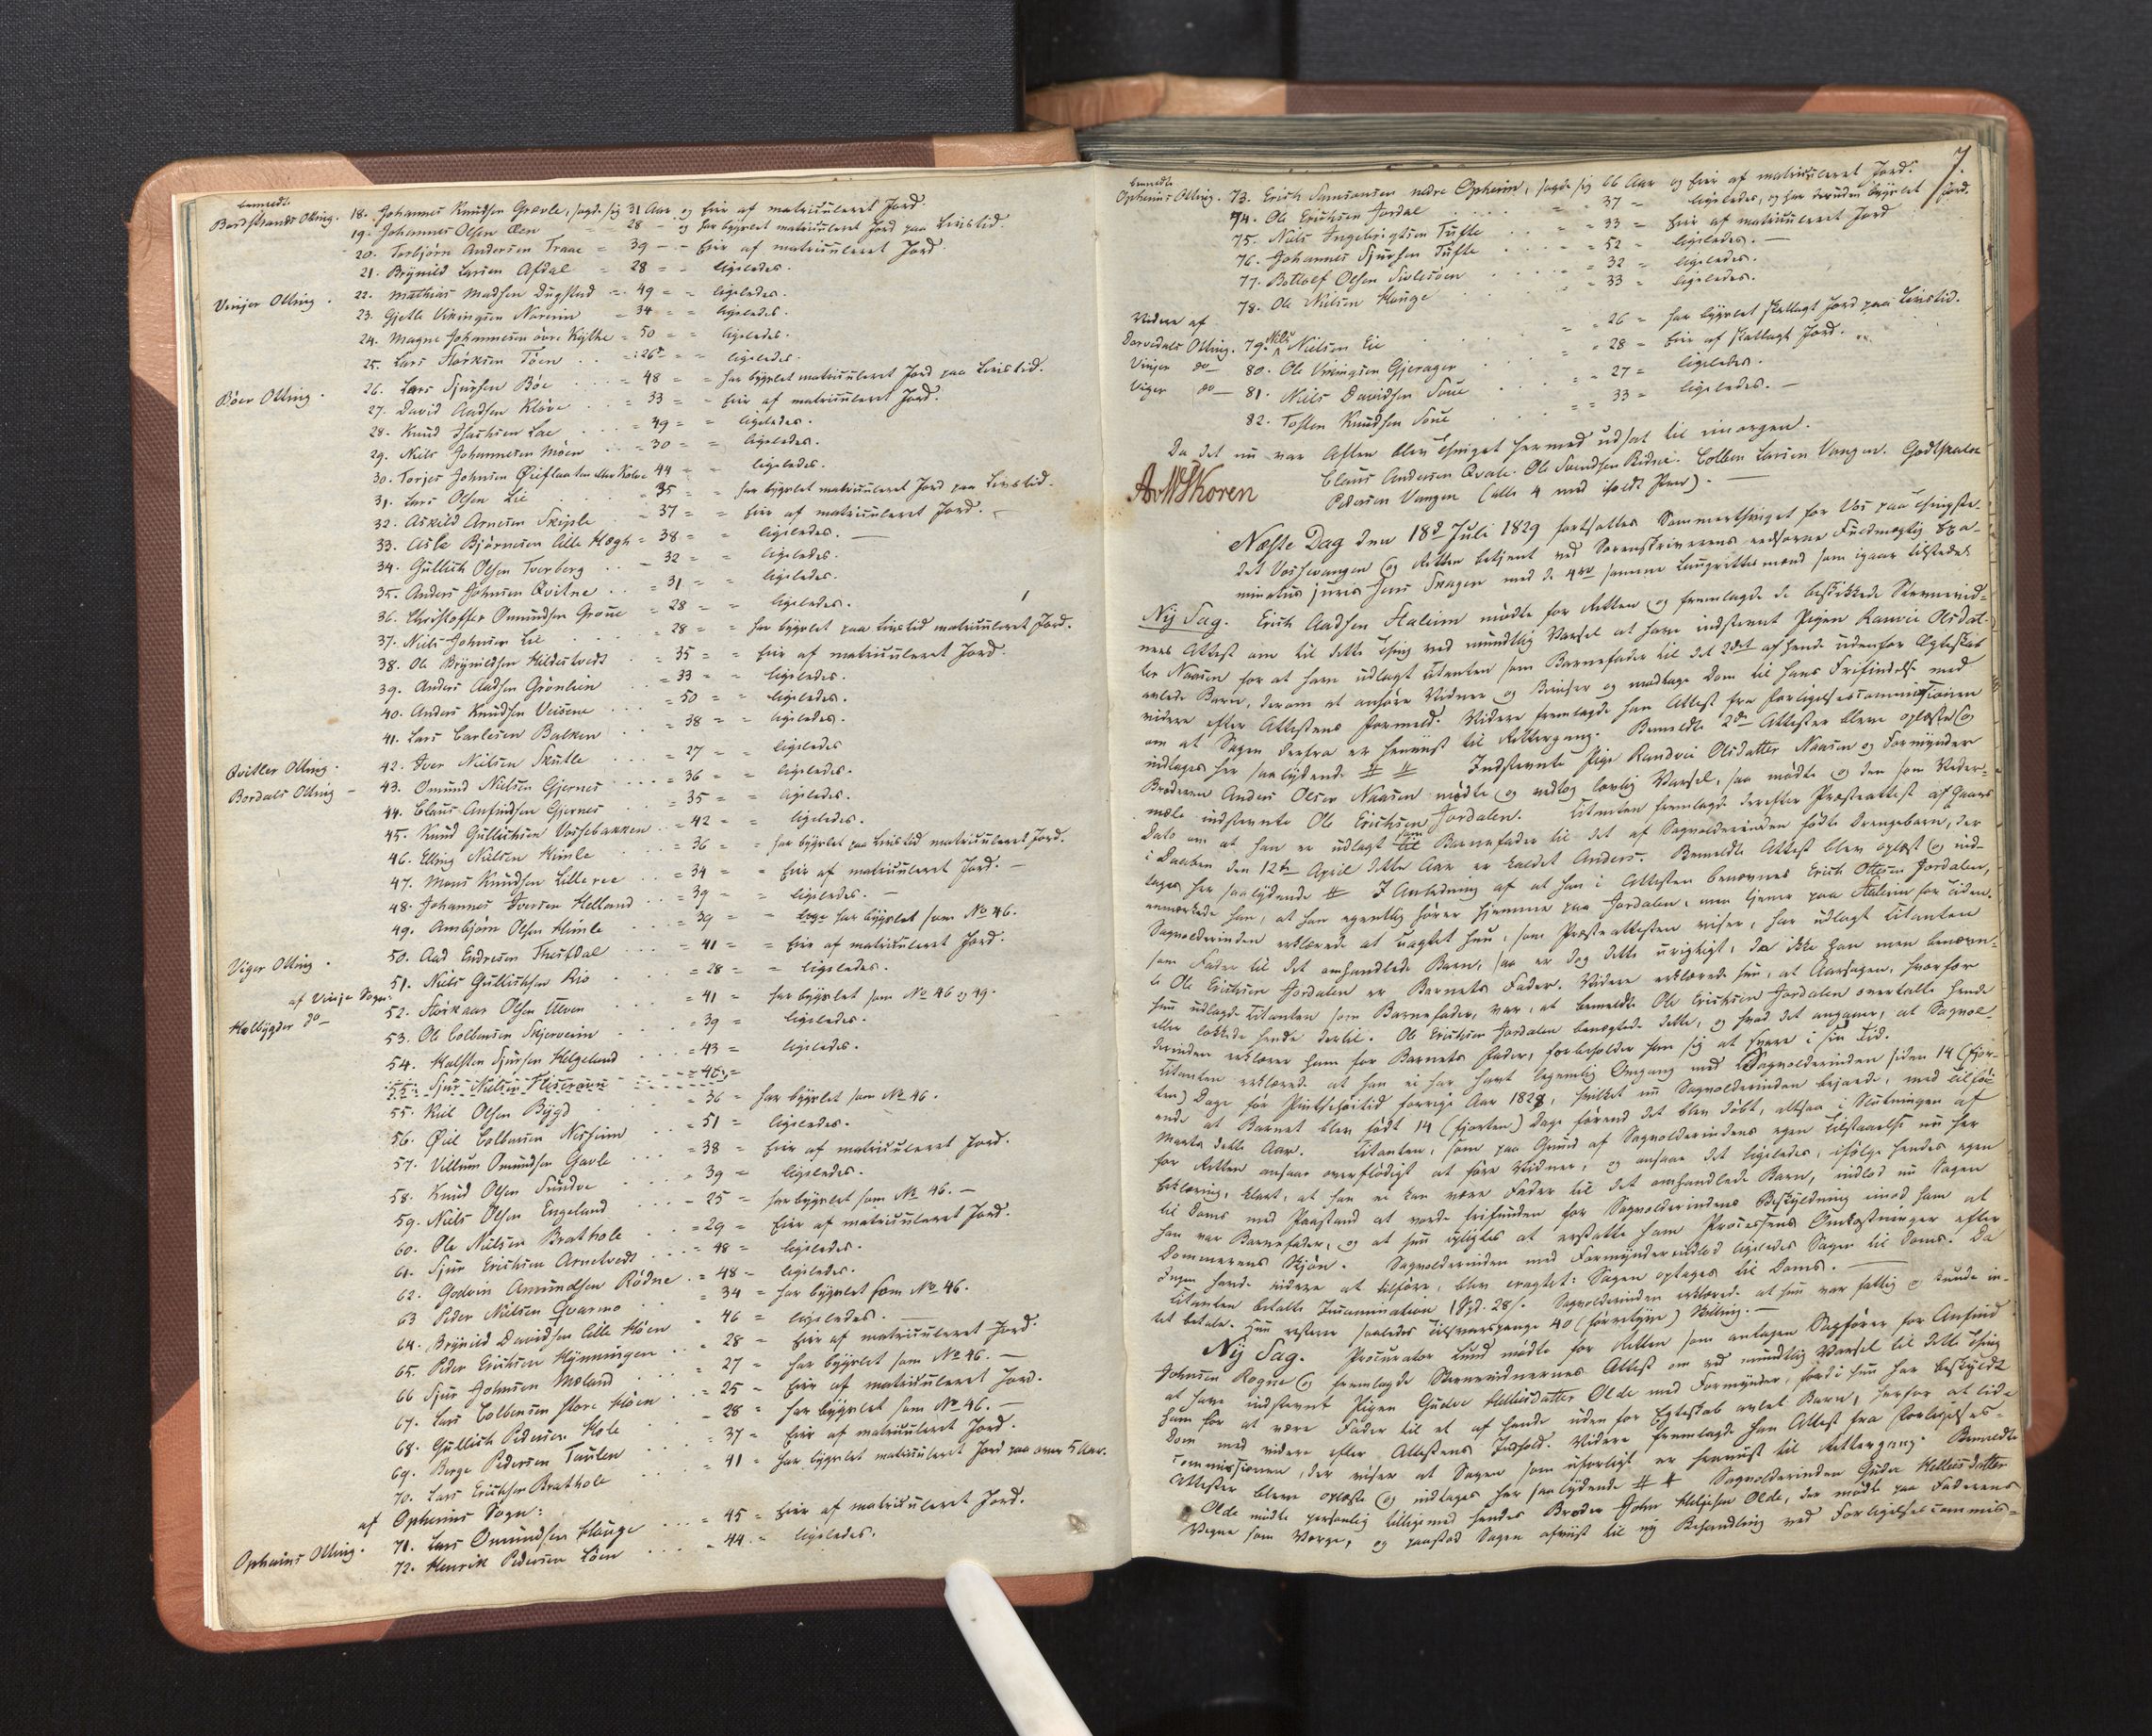 bemeldte
Bordstrands Otting. 18. Johannes Knudsen Grevle, sagde sig 31 Aar og Eier af matriculeret Jord.
19. Johannes Olsen Øen = 28 - og har byxlet matriculeret Jord paa Livstid.
20. Torbjørn Andersen Traae = 39 - - Eier af matriculeret Jord.
21. Brynild Larsen Afdal = 28 = = ligeledes.
Vinjer Otting. 22. Mathias Madsen Dugstad = 49 = = ligeledes.
23. Gjetle Vikingsen Norein = 34 = = ligeledes.
24. Magne Johannesen øvre Kythe = 50 = = ligeledes.
25. Lars Størksen Tøen = 26 = = ligeledes.
Bøer Otting. 26. Lars Sjursen Bøe = 48 = = har byxlet matriculeret Jord paa Livstid.
27. David Aadsen Kløve = 33 = = Eier af matriculeret Jord.
28. Knud Isachsen Lae = 49 = = ligeledes.
29. Niels Johannesen Møen = 30 = = ligeledes.
30. Torjer Johnsen eller Kolve 44 = ligeledes.
31. Lars Olsen Lie = 35 = = har byxlet matriculeret Jord paa Livstid.
32. Askild Arnesen Skiple = 37 = = Eier af matriculeret Jord.
33. Asle Björnesen lille Høgh = 38 = = ligeledes.
34. Gullich Olsen Tverberg = 32 = = ligeledes.
35. Anders Johnsen Qvitne = 31 = = ligeledes.
36. Christoffer Omundsen Groue = 28 = = ligeledes.
37. Niels Johnsen Lie = 28 = = har byxlet paa Livstid matriculeret Jord.
38. Ole Brynildsen Hildestvedt = 35 = = Eier af matriculeret Jord.
39. Anders Aadsen Grönlien = 33 = = ligeledes.
40. Anders Knudsen Veisene = 50 = = ligeledes.
41. Lars Carlesen Balken = 38 = = ligeledes.
Qvitler Otting. 42. Iver Nielsen Skutle = 27 = = ligeledes
Bordals Otting - 43. Omund Nielsen Gjernes = 36 = = ligeledes.
44. Claus Anfindsen Gjernes = 35 = = ligeledes.
45. Knud Gullichsen Vossebakken = 42 = = ligeledes.
46. Elling Nielsen Himle = 36 = = har byxlet paa Livstid matriculeret Jord.
47. Mons Knudsen Lilleree = 34 = = Eier af matriculeret Jord.
48. Johannes Iversen Helland = 39 = = ligeledes.
49. Arnbjörn Olsen Himle = 39 = = har byxlet som No 46.
50. Aad Endresen Thufdal = 41 = = Eier af matriculeret Jord.
Viger Otting. 51. Niels Gullichsen Rio = 28 = = ligeledes.
af Vinje Sogn: 52. Störkaar Olsen Ulven = 41 = har byxlet som No 46 og 49.
Holbygder do 53. Ole Colbensen Skjerveim = 39 = ligeledes.
54. Halsten Sjursen Helgeland = 43 = ligeledes.
55. Sjur Nielsen = 45 =
55. Niel Olsen Bygd = 36 = har byxlet som No 46.
56. Ørik Colbensen Nesheim = 51 = ligeledes.
57. Villum Omundsen Gavle = 38 = Eier af matriculeret Jord.
58. Knud Olsen Sundve = 39 = ligeledes.
59. Niels Olsen Engeland = 25 = har byxlet som No 46.
60. Ole Nielsen Brathole = 29 = Eier af matriculeret Jord.
61. Sjur Erichsen Arnetvedt = 48 = ligeledes.
62. Godvin Amundsen Rödne = 48 = ligeledes.
63 Peder Nielsen Qvarmo = 34 = har byxlet som No 46.
64. Brynild Davidsen lille Höen = 46 = ligeledes.
65. Peder Erichsen Hynningen = 28 = Eier af matriculeret Jord.
66 Sjur Johnsen Meland = 27 = har byxlet som No 46.
67. Lars Colbensen store Höen = 25 = Eier af matriculeret Jord.
68. Gullich Pedersen Hole = 28 = har byxlet som No 46.
69. Berge Pedersen Taulen = 37 = Eier af matriculeret Jord.
70. Lars Erichsen Brathole = 41 = har byxlet matriculeret Jord paa over 5 Aar.
af Opheims Sogn:
Opheims Otting. 71. Lars Omundsen Hauge = 45 = Eier af matriculeret Jord.
72. Henrik Pedersen Löen = 44 = ligeledes.
7.
bemeldte
Opheims Otting. 73. Erich Samsonsen nedre Opheim, sagde sig 66 Aar og Eier af matriculeret Jord.
74. Ole Erichsen Jordal = 37 = ligeledes, og har desuden byxlet Jord.
75. Niels Ingebrigtsen Tufte = 33 = Eier af matriculeret Jord
76. Johannes Sjursen Tufte = 52 = ligeledes.
77. Botholf Olsen Sivlesöen = 32 = ligeledes.
78. Ole Nielsen Hauge = 33 = ligeledes.
Videre af
Dorvedals Otting. 79. Nils Nielsen Lie = 26 = har byxlet skatlagt Jord paa Livstid.
Vinjer do 80. Ole Vikingsen Gjerager = 28 = Eier af skatlagt Jord.
Viger do 81. Niels Davidsen Soue = 27 = ligeledes.
82. Tosten Knudsen Soue = 33 = ligeledes.
Da det nu var Aften blev Thinget hermed udsat til imorgen.
AvMSKoren Claus Andersen Qvale. Ole Svendsen Ridne. Colben Larsen Vangen. Godtskalk
Pedersen Vangen (alle 4 med iholdt Pen).
Næste Dag den 18de Juli 1829 fortsattes Sommerthinget for Vos paa Thingste-
det Vossevangen og Retten betjent ved Sorenskriverens edsvorne Fuldmægtig Exa-
minatus juris Jens Skagen med de 4re samme Laugrettesmænd som igaar tilstede.
Ny Sag. Erich Aadsen Staleim mödte for Retten og fremlagde de beskikkede Stevnevid-
ners Attest om til dette Thing ved mundtlig Varsel at have indstevnt Pigen Ranvei Olsdat-
ter Naasen for at have udlagt Citanten som Barnefader til det 2det af hende udenfor Ægteskab
avlede Barn, derom at anhöre Vidner og Beviser og modtage Dom til hans Frifindelse med
videre efter Attestens Formeld. Videre fremlagde han Attest fra Forligelsescommissionen
om at Sagen derfra er henviist til Rettergang. Bemeldte 2de Attester bleve oplæste og
indtages her saalydende # # Indstevnte Pige Randvei Olsdatter Naasen og Formynder
Broderen Anders Olsen Naasen mödte og vedtog lovlig Varsel, saa mödte og den som Veder-
mæle indstevnte Ole Erichsen Jordalen. Citanten fremlagde derefter Præsteattest af Gaars
Dato om at han er udlagt som Barnefader til det af Sagvolderinden födte Drengebarn, der
i Daaben den 12te April dette Aar er kaldet Anders. Bemeldte Attest blev oplæst og ind-
tages her saalydende # I Anledning af at han i Attesten benævnes Erich Ottesen Jordalen,
anmærkede han, at han egentlig hörer hjemme paa Jordalen, men tjener paa Staleim for Tiden.
Sagvolderinden erklærede at uagtet hun, som Præsteattesten viser, har udlagt Citanten
som Fader til det omhandlede Barn, saa er dog dette urigtigt, da ikke han men benævn-
te Ole Erichsen Jordalen er Barnets Fader. Videre erklærede hun, at Aarsagen, hvorfor
hun udlagde Citanten som Barnefader, var, at bemeldte Ole Erichsen Jordalen overtalte hende
eller lokkede hende dertil. Ole Erichsen Jordalen benægtede dette, og hvad det angaaer, at Sagvol-
derinden erklærer ham for Barnets Fader, forbeholder han sig at svare i sin Tid.
Citanten erklærede at han ei har havt legemlig Omgang med Sagvolderinden siden 14 (fjor-
ten) Dage för Pintsehöitid forrige Aar 1828, hvilket nu Sagvolderinden bejaede, med Tilföi-
ende at Barnet blev födt 14 (fjorten) Dage förend det blev döbt, altsaa i Slutningen af
Marts dette Aar. Citanten, som paa Grund af Sagvolderindens egen Tilstaaelse nu her
for Retten ansaae overflödigt at före Vidner, og ansaae det ligeledes, ifölge hendes egen
Erklæring, klart, at han ei kan være Fader til det omhandlede Barn, indlod nu Sagen
til Doms med Paastand at vorde frifunden for Sagvolderindens Beskyldning imod ham at
han var Barnefader, og at hun pligtes at erstatte ham Processens Omkostninger efter
Dommerens Skjön. Sagvolderinden med Formynder indlod ligeledes Sagen til Doms. Da
Ingen havde videre at tilföre, blev eragtet: Sagen optages til Doms.
Citanten betalte Incamination 1 Spd. 28 s. Sagvolderinden erklærede at hun var fattig og kunde in-
tet betale. Hun resterer saaledes Tilsvarspenge 40 (förretyve) Skilling.
Ny Sag. Procurator Lund mödte for Retten som antagen Sagförer for Anfind
Johnsen Rogne og fremlagde Stevnevidnernes Attest om ved mundtlig Varsel til dette Thing
at have indstevnt Pigen Gudve Helliesdatter Olde med Formynder, fordi hun har beskyldt
ham for at være Fader til et af hende uden for Egteskab avlet Barn, herfor at lide
Dom med videre efter Attestens Indhold. Videre fremlagde han Attest fra Forligelses-
commissionen, der viser at Sagen som uforligt er henviist til Rettergang. Bemeldte
Attester bleve oplæste og indtages her saalydende # # Sagvolderinden Gudve Helliesdatter
Olde mödte personlig tilligemed hendes Broder John Heljesen Olde, der mödte paa Faderens
Vegne som Værge, og paastod Sagen afviist til ny Behandling ved Forligelsescommis-